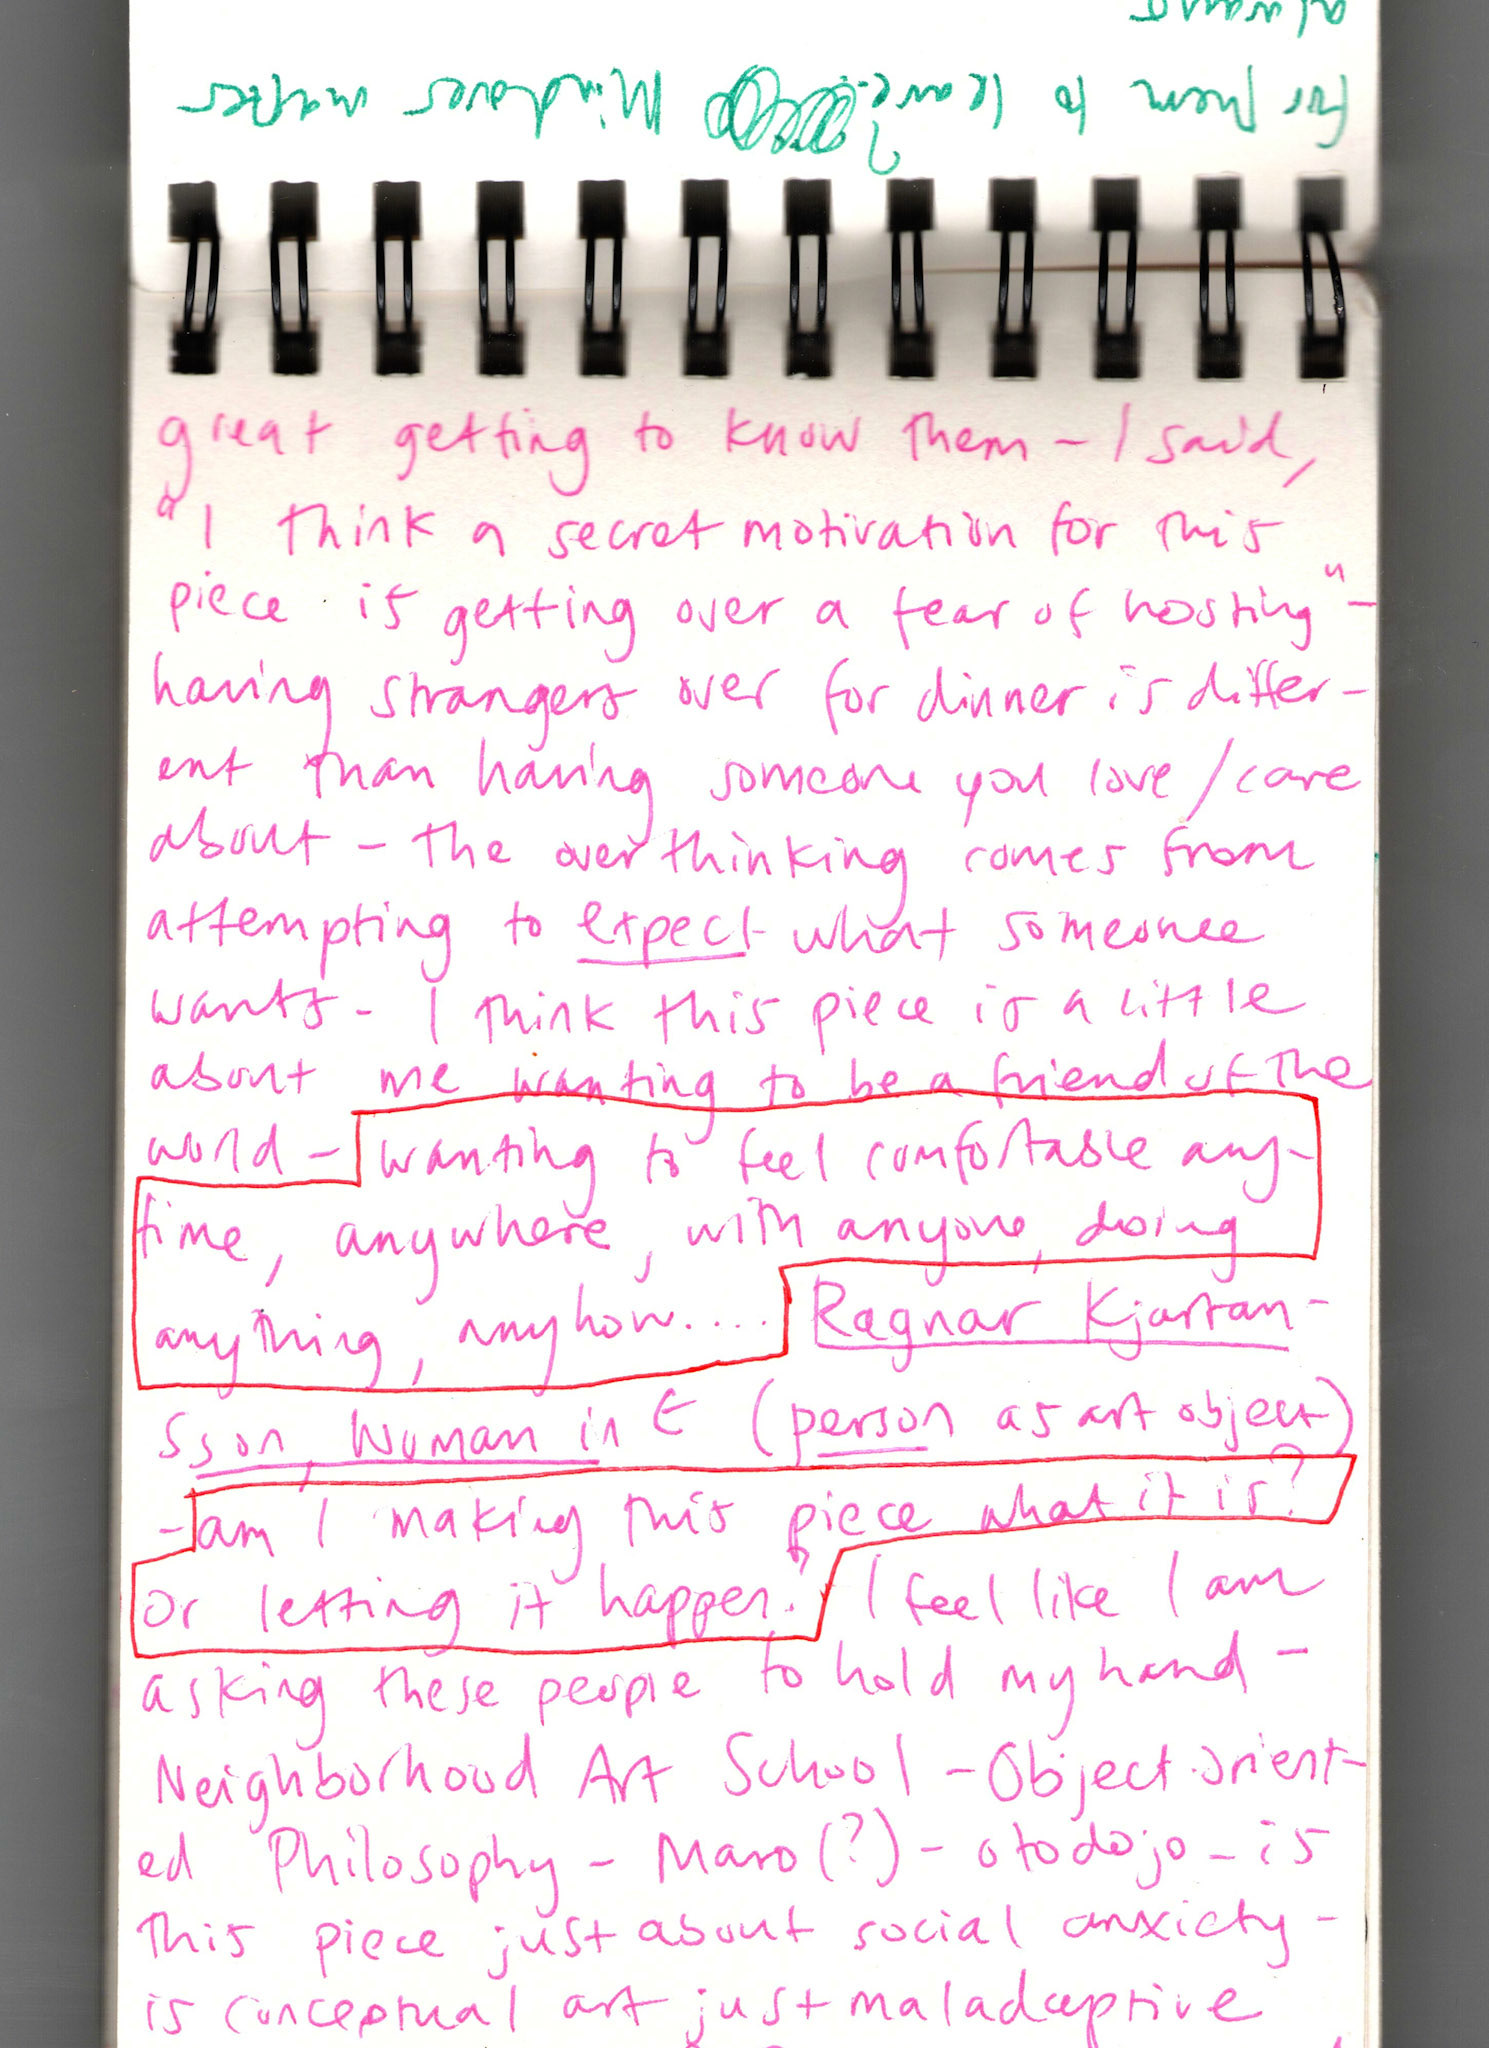 always
for them to leave? Mind over matter
great getting to know them - I said,
"I think a secret motivation for this
piece is getting over a fear of hosting" -
having strangers over for dinner is differ-
ent than having someone you love/care
about - the overthinking comes from
attempting to expect what someonee
wants - I think this piece is a little
about me wanting to be a friend of the
world - wanting to feel comfortable any-
time, anywhere, with anyone, doing
anything, anyhow....  Ragnar Kjartan-
sson, Woman in E (person as art object)
- am I making this piece what it is?
or letting it happen? I feel like I am
asking these people to hold my hand -
Neighborhood Art School - Object-orient-
ed Philosophy - Maro(?) - otodojo - is
this piece just about social anxiety -
is conceptual art just maladaptive